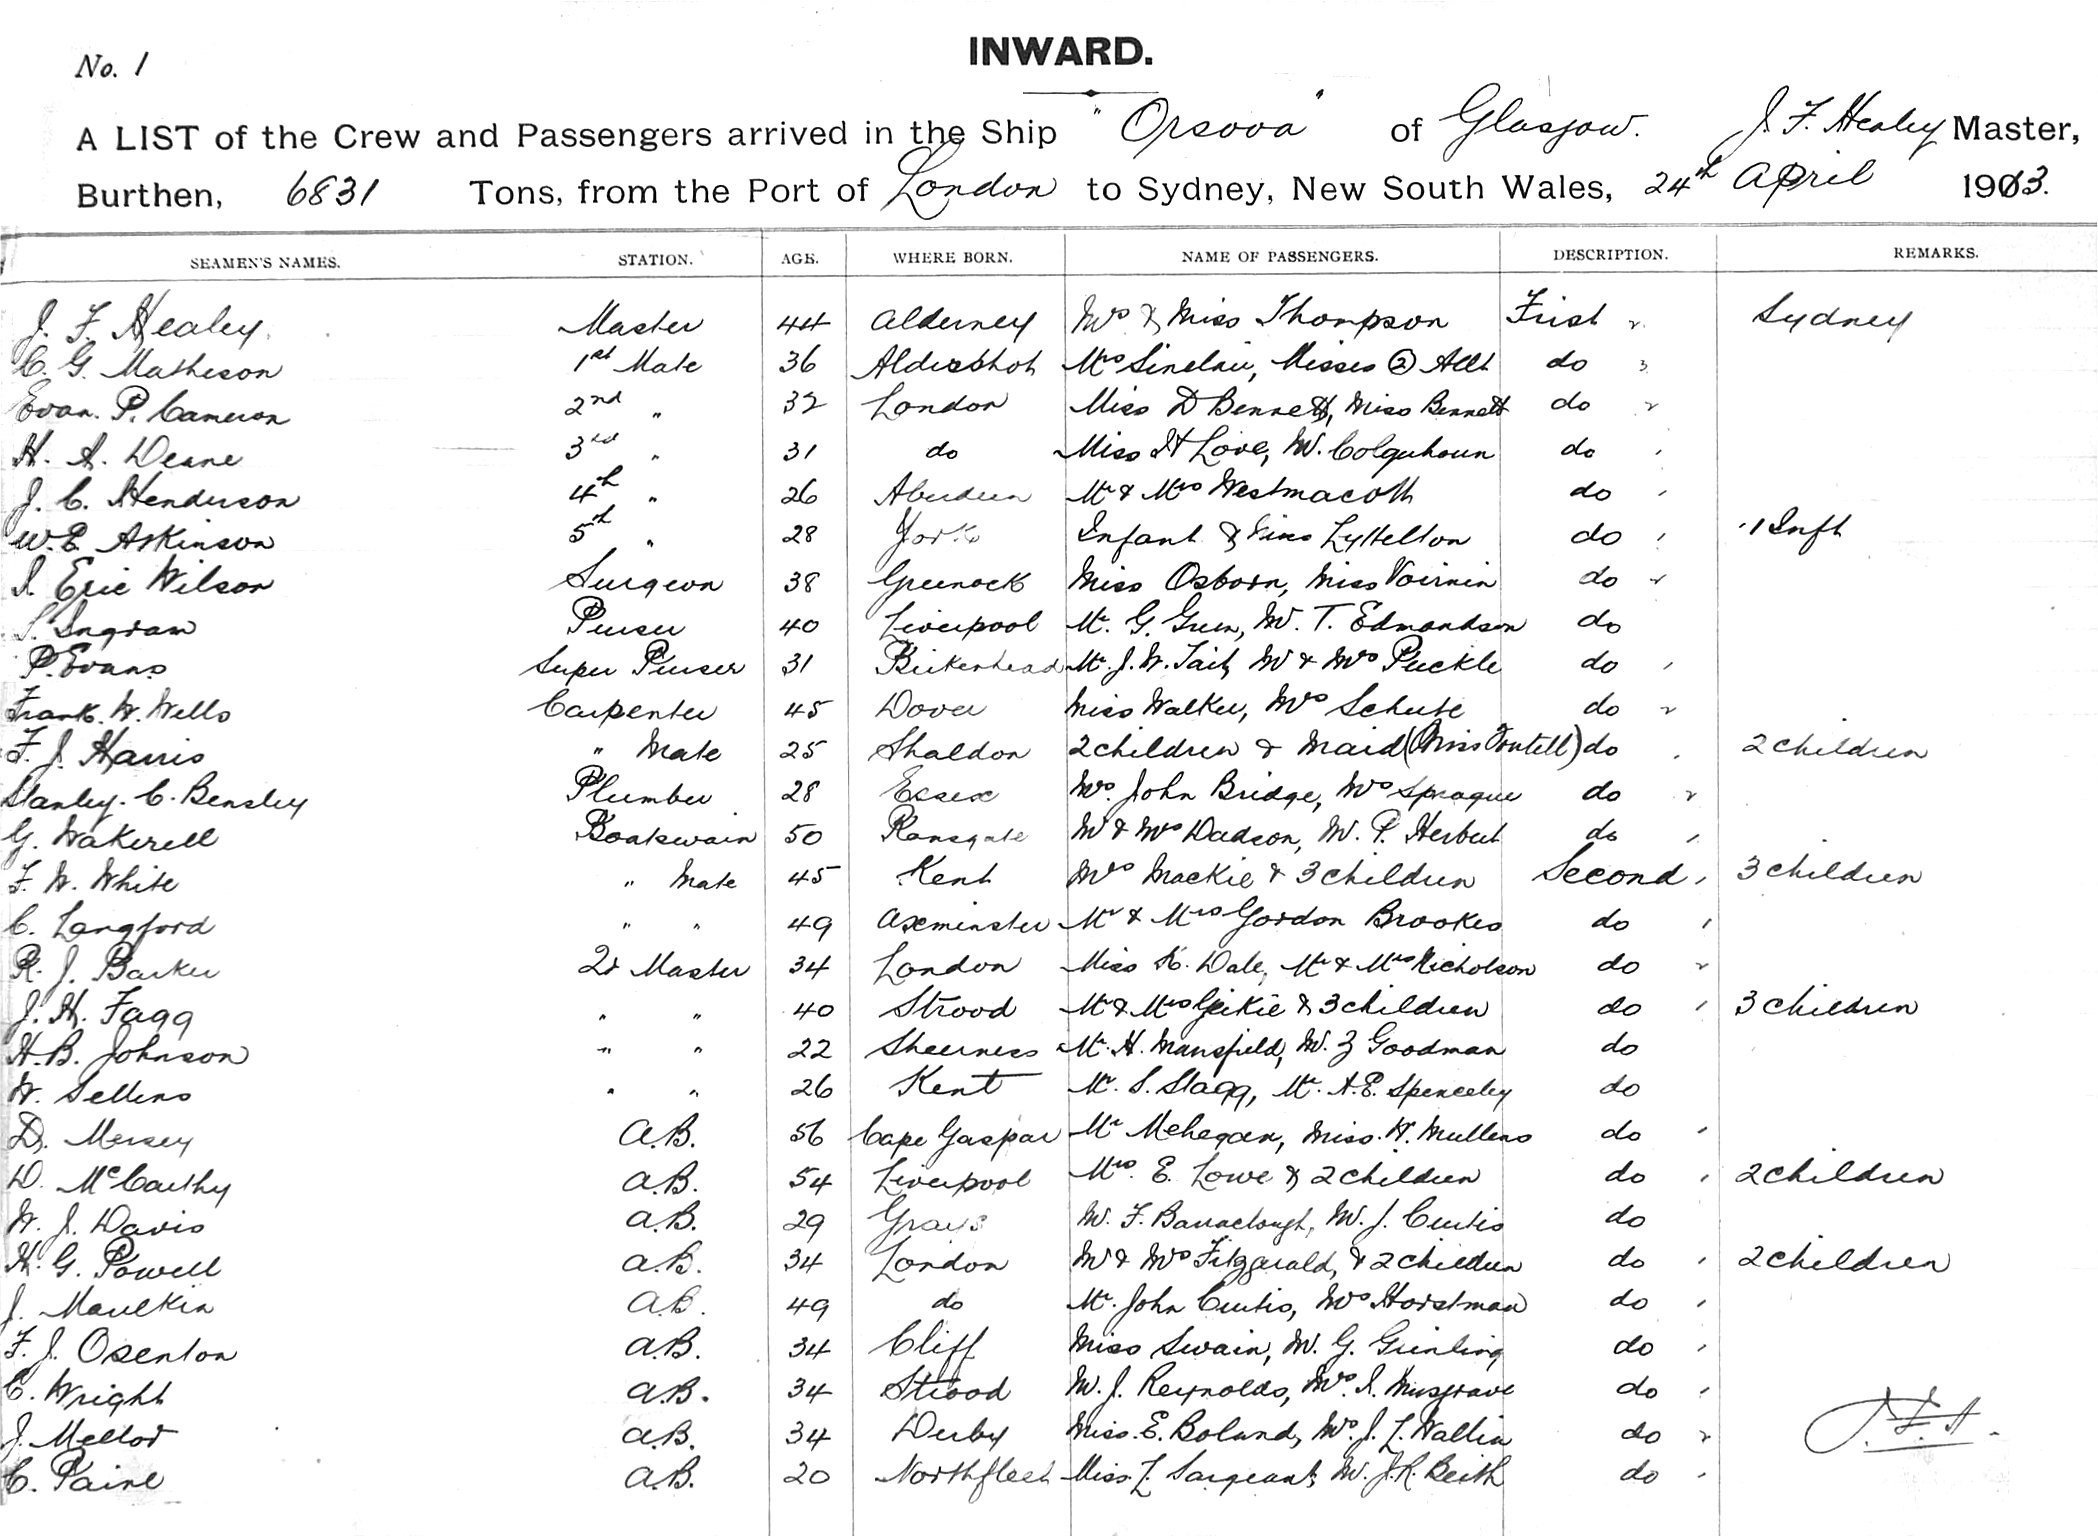 No. 1
INWARD.
A LIST of the Crew and Passengers arrived in the Ship "Orsova" of Glasgow. J. F. Healey Master,
Burthen, 6831 Tons, from the Port of London to Sydney, New South Wales, 24th April 1913.
SEAMEN'S NAMES. STATION. AGE. WHERE BORN. NAME OF PASSENGERS. DESCRIPTION. REMARKS.
J. F. Healey. Master 44 Alderney Mrs & Miss Thompson First Sydney
C. G. Matheson 1st Mate 36 Aldershot Mrs Sinclair, Misses (2) Allt do
Evan. P. Cameron 2nd " 32 London Miss D Bennett, Miss Bennett do
H. A. Deane 3rd " 31 do Miss H Love, Mr. Colquhoun do
J. C. Henderson 4th " 26 Aberdeen Mr & Mrs Westmacott do
W. E. Askinson 5th " 28 York Infant & Miss Lyttelton do 1 Inft
J. Eric Wilson Surgeon 38 Greenock Miss Osborn, Miss Voirnin do
S. Ingram Purser 40 Liverpool Mr. G. Green, Mr. T. Edmondson do
P. Evans Super Purser 31 Birkenhead Mr. J. W. Tait, Mr & Mrs Puckle do
Frank. W. Wells Carpenter 45 Dover Miss Walker, Mrs Schute do
F. J. Harris " Mate 25 Shaldon 2 children & Maid (Miss Tontell) do 2 children
Stanley. C. Bensley Plumber 28 Essex Mrs. John Bridge, Mrs Sprague do
G. Wakerell Boatswain 50 Ramsgate Mr & Mrs Dadson, Mr. P. Herbert do
F. W. White " Mate 45 Kent Mrs Mackie & 3 children Second 3 children
C. Langford " " 49 Axminster Mr & Mrs Gordon Brookes do
R. J. Barker Qr Master 34 London Miss K. Dale, Mr & Mrs Nicholson do
J. H. Fagg " " 40 Strood Mr & Mrs Geikie & 3 children do 3 children
H. B. Johnson " " 22 Sheerness Mr. H. Mansfield, Mr. Z Goodman do
W. Sellens " " 26 Kent Mr. S. Stagg, Mr. A. E. Spenceley do
D. Mersey A.B. 56 Cape Gaspar Mr Mehegan, Miss. W. Mullens do
D. McCarthy A.B. 54 Liverpool Mrs. E. Lowe & 2 children do 2 children
W. J. Davis A.B. 29 Grays Mr. F. Barraclough, Mr. J. Curtis do
H. G. Powell A.B. 34 London Mr & Mrs Fitzgerald, & 2 children do 2 children
J. Maulkin A.B. 49 do Mr. John Curtis, Mrs Horstman do
F. J. Osenton A.B. 34 Cliff Miss Swain, Mr. G. Girling do
C. Wright A.B. 34 Strood Mr. J. Reynolds, Mrs. I. Musgrave do
J. Mellor A.B. 34 Derby Miss. E. Boland, Mrs. J. L. Wallin do
C. Paine A.B. 20 Northfleet Miss. L Sargeant, Mr. J. R. Beith do